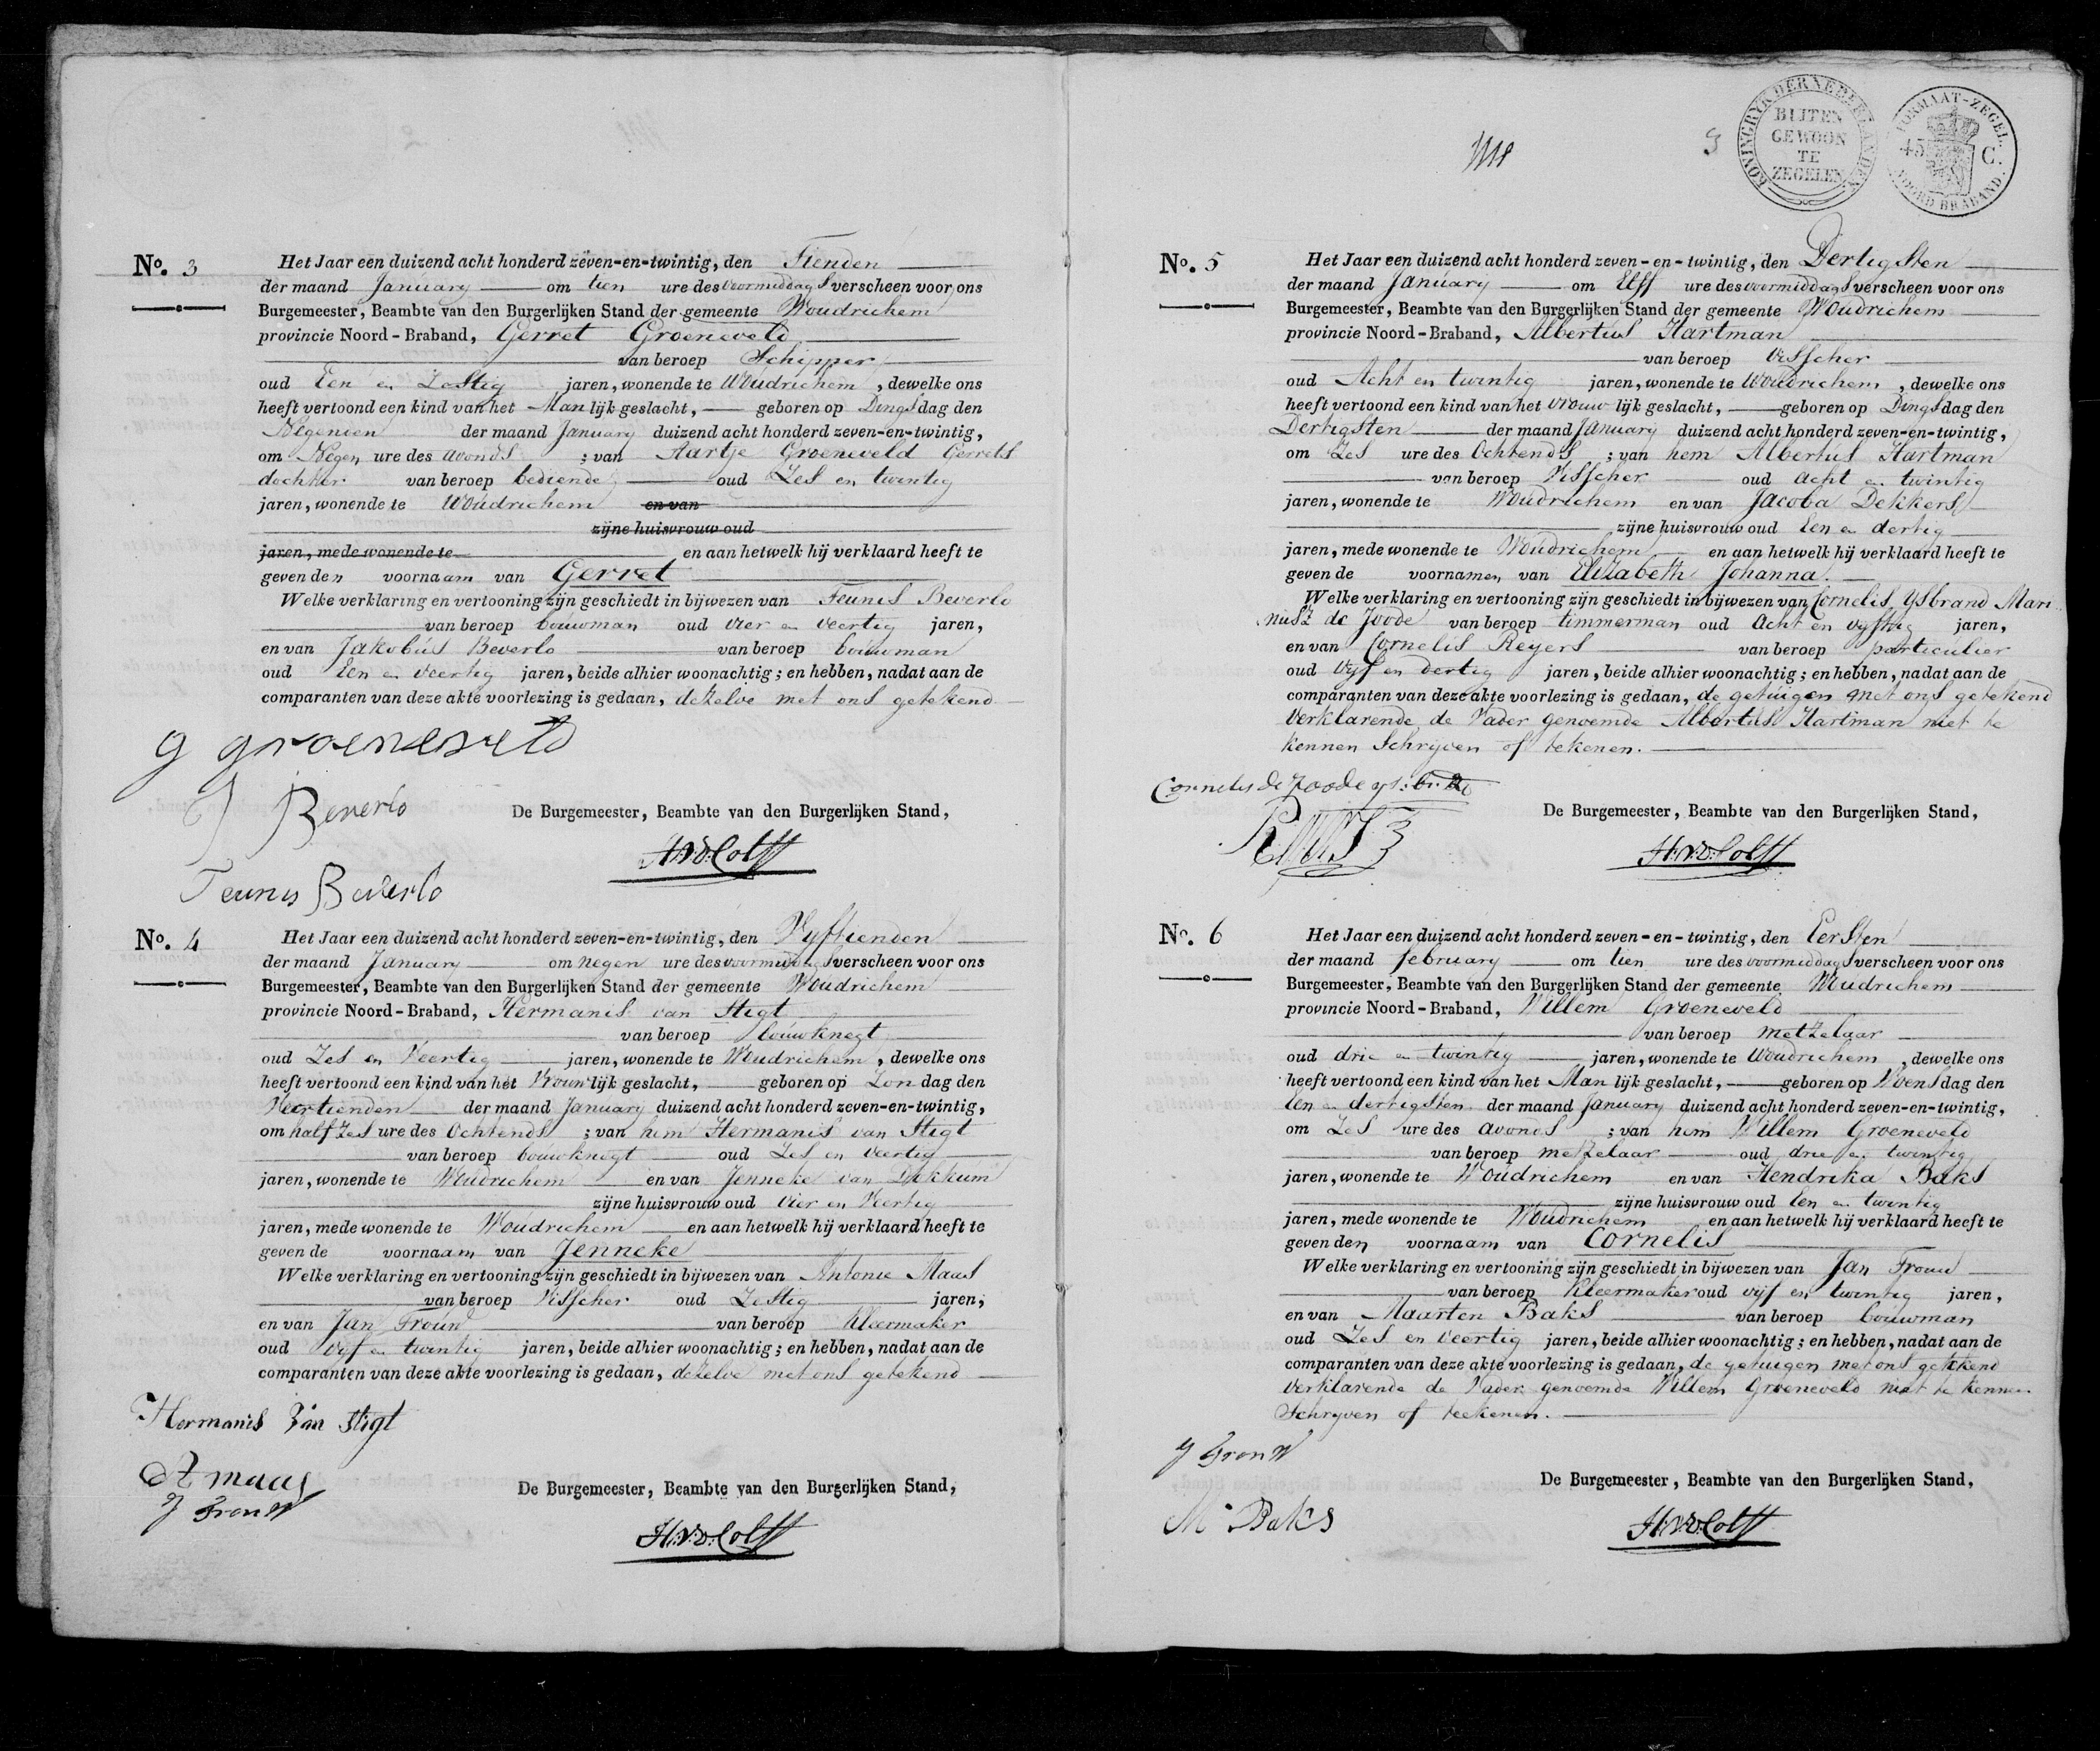 No. 3
Het Jaar een duizend acht honderd zeven-en-twintig, den Tienden
der maand January om tien ure des voormiddags verscheen voor ons
Burgemeester, Beambte van den Burgerlijken Stand der gemeente Woudrichem
provincie Noord-Braband, Gerret Groeneveld
van beroep Schipper
oud Een en Zestig jaren, wonende te Woudrichem, dewelke ons
heeft vertoond een kind van het Manlijk geslacht, geboren op Dingsdag den
Negenden der maand January duizend acht honderd zeven-en-twintig,
om Negen ure des avonds ; van Aartje Groeneveld Gerrets
dochter van beroep bediende oud Zes en twintig
jaren, wonende te Woudrichem en van
zijne huisvrouw oud
jaren, mede wonende te en aan hetwelk hij verklaard heeft te
geven den voornaam van Gerret
Welke verklaring en vertooning zijn geschiedt in bijwezen van Teunis Beverlo
van beroep bouwman oud vier en veertig jaren,
en van Jakobus Beverlo van beroep bouwman
oud Een en veertig jaren, beide alhier woonachtig; en hebben, nadat aan de
comparanten van deze akte voorlezing is gedaan, dezelve met ons getekend
g groeneveld
J Beverlo
De Burgemeester, Beambte van den Burgerlijken Stand,
Teunis Beverlo
No. 4
Het Jaar een duizend acht honderd zeven-en-twintig, den Vyftienden
der maand January om negen ure des voormiddags verscheen voor ons
Burgemeester, Beambte van den Burgerlijken Stand der gemeente Woudrichem
provincie Noord-Braband, Hermanis van Stigt
van beroep bouwknegt
oud Zes en Veertig jaren, wonende te Woudrichem, dewelke ons
heeft vertoond een kind van het Vrouwlijk geslacht, geboren op Zondag den
Veertienden der maand January duizend acht honderd zeven-en-twintig,
om half Zes ure des Ochtends ; van hem Hermanis van Stigt
van beroep bouwknegt oud Zes en Veertig
jaren, wonende te Woudrichem en van Jenneke van Dekkum
zijne huisvrouw oud Vier en Veertig
jaren, mede wonende te Woudrichem en aan hetwelk hij verklaard heeft te
geven de voornaam van Jenneke
Welke verklaring en vertooning zijn geschiedt in bijwezen van Antonie Maas
van beroep Visscher oud Zestig jaren,
en van Jan Trouw van beroep kleermaker
oud vyf en twintig jaren, beide alhier woonachtig; en hebben, nadat aan de
comparanten van deze akte voorlezing is gedaan, dezelve met ons getekend
Hermanis Van Stigt
A maas
J Trouw
De Burgemeester, Beambte van den Burgerlijken Stand,
3
KONINGRYK DER NEDERLANDEN
BUITEN
GEWOON
TE
ZEGELEN
FORMAAT-ZEGEL
45 C.
NOORD BRABAND
No. 5
Het Jaar een duizend acht honderd zeven-en-twintig, den Dertigsten
der maand January om Elff ure des voormiddags verscheen voor ons
Burgemeester, Beambte van den Burgerlijken Stand der gemeente Woudrichem
provincie Noord-Braband, Albertus Hartman
van beroep Visscher
oud Acht en twintig jaren, wonende te Woudrichem, dewelke ons
heeft vertoond een kind van het vrouwlijk geslacht, geboren op Dingsdag den
Dertigsten der maand January duizend acht honderd zeven-en-twintig,
om Zes ure des Ochtends ; van hem Albertus Hartman
van beroep Visscher oud acht en twintig
jaren, wonende te Woudrichem en van Jacoba Dekkers
zijne huisvrouw oud Een en dertig
jaren, mede wonende te Woudrichem en aan hetwelk hij verklaard heeft te
geven de voornamen van Elizabeth Johanna.
Welke verklaring en vertooning zijn geschiedt in bijwezen van Cornelis Ysbrand Mari
nusz de Joode van beroep timmerman oud Acht en vyftig jaren,
en van Cornelis Reyers van beroep particulier
oud vyf en dertig jaren, beide alhier woonachtig; en hebben, nadat aan de
comparanten van deze akte voorlezing is gedaan, de getuigen met ons getekend
verklarende de Vader genoemde Albertus Hartman niet te
kennen Schryven of tekenen.
Cornelis de Joode
De Burgemeester, Beambte van den Burgerlijken Stand,
No. 6
Het Jaar een duizend acht honderd zeven-en-twintig, den Eersten
der maand february om tien ure des voormiddags verscheen voor ons
Burgemeester, Beambte van den Burgerlijken Stand der gemeente Woudrichem
provincie Noord-Braband, Willem Groeneveld
van beroep metzelaar
oud drie en twintig jaren, wonende te Woudrichem, dewelke ons
heeft vertoond een kind van het Manlijk geslacht, geboren op Woensdag den
Een en dertigsten der maand January duizend acht honderd zeven-en-twintig,
om Zes ure des avonds ; van hem Willem Groeneveld
van beroep metzelaar oud drie en twintig
jaren, wonende te Woudrichem en van Hendrika Baks
zijne huisvrouw oud Een en twintig
jaren, mede wonende te Woudrichem en aan hetwelk hij verklaard heeft te
geven den voornaam van Cornelis
Welke verklaring en vertooning zijn geschiedt in bijwezen van Jan Trouw
van beroep Kleermaker oud vijf en twintig jaren,
en van Maarten Baks van beroep bouwman
oud Zes en veertig jaren, beide alhier woonachtig; en hebben, nadat aan de
comparanten van deze akte voorlezing is gedaan, de getuigen met ons getekend
verklarende de Vader genoemde Willem Groeneveld niet te kennen
Schryven of teekenen.
J Trouw
De Burgemeester, Beambte van den Burgerlijken Stand,
M Baks